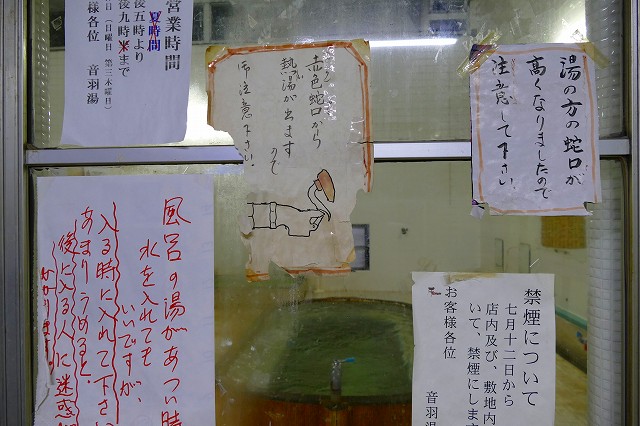 営業時間
夏時間
後五時より
後九時まで
日（日曜日 第三木曜日）
様各位
音羽湯
赤色蛇口から
熱湯が出ます
ので
御注意下さい。
湯の方の蛇口が
高くなりましたので
注意して下さい。
風呂の湯があつい時
水を入れても
いいですが、
入る時に入れて下さい
あまりうめると、
後に入る人に迷惑
禁煙について
七月十二日から
店内及び、敷地内
いて、禁煙にします
お客様各位
音羽湯